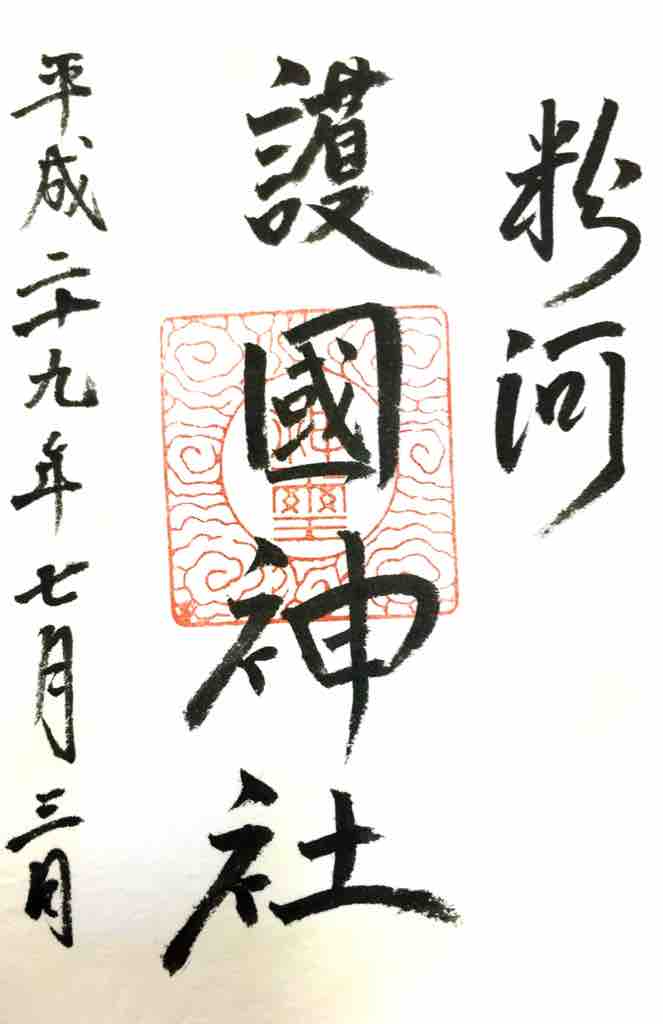 粉河
護國神社
平成二十九年七月三日
神璽